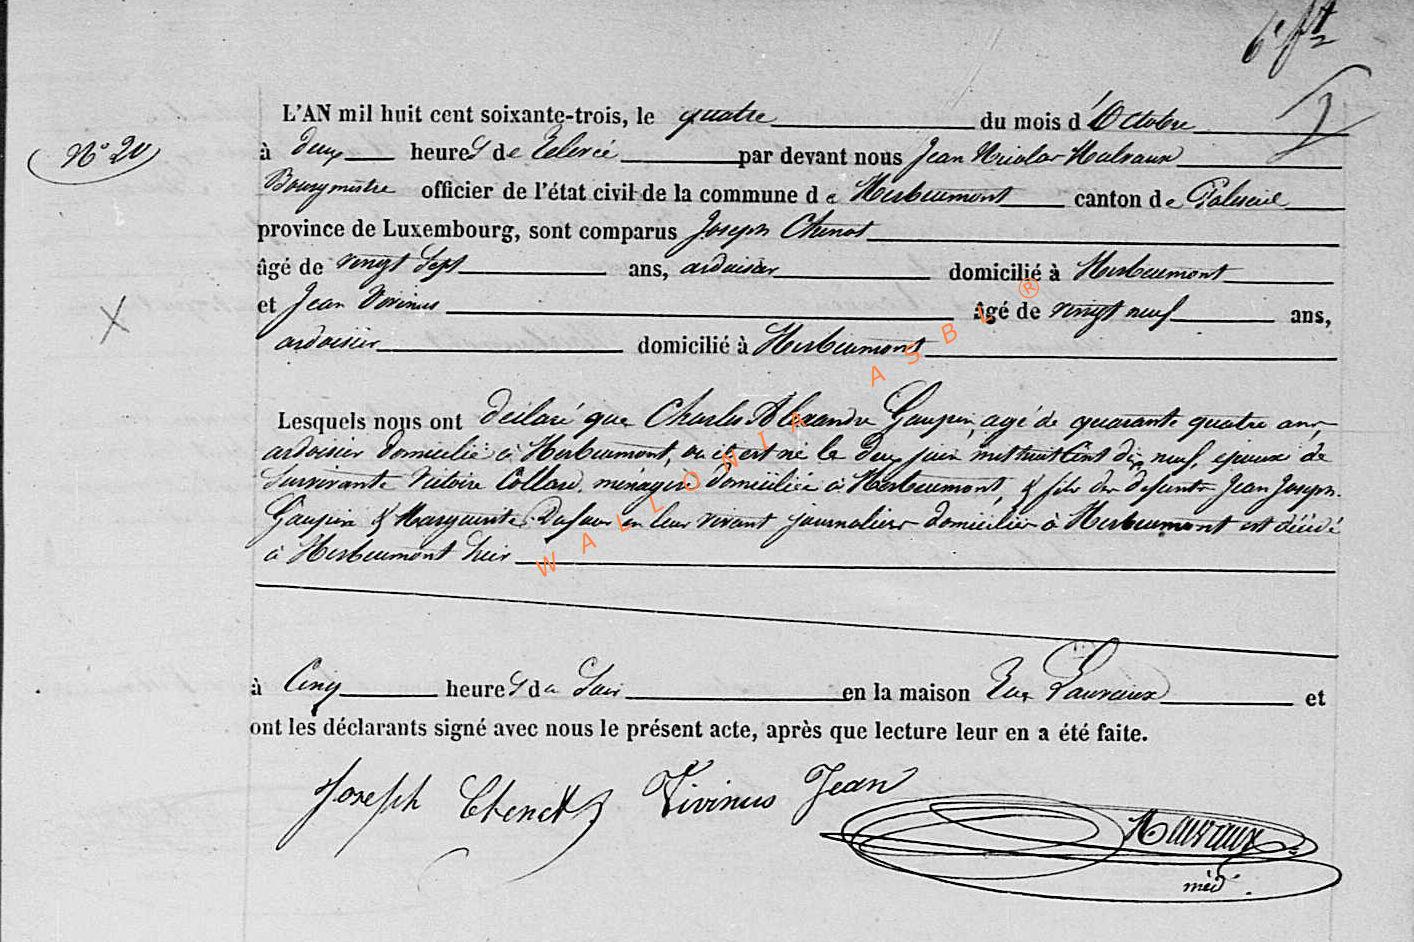 L'AN mil huit cent soixante-trois, le quatre du mois d'Octobre
N° 20
à deux heures de relevée par devant nous Jean Nicolas
Bourgmestre officier de l'état civil de la commune de Herbeumont canton de Paliseul
province de Luxembourg, sont comparus Joseph Chenot
âgé de vingt sept ans, ardoisier domicilié à Herbeumont
et Jean Vivinus âgé de vingt neuf ans,
ardoisier domicilié à Herbeumont
Lesquels nous ont déclaré que Charles Alexandre Gaupin, agé de quarante quatre ans,
ardoisier domicilié à Herbeumont, où il est né le deux juin mil huit Cent dix neuf, époux de
Survivante Victoire Collard, ménagère domiciliée à Herbeumont, & fils des défunts Jean Joseph
Gaupin & Marguerite Dufour en leur vivant journaliers domiciliés à Herbeumont est décédé
à Herbeumont hier
à Cinq heures du Soir en la maison et
ont les déclarants signé avec nous le présent acte, après que lecture leur en a été faite.
Joseph Chenot Vivinus Jean
WALLONIA ASBL ®